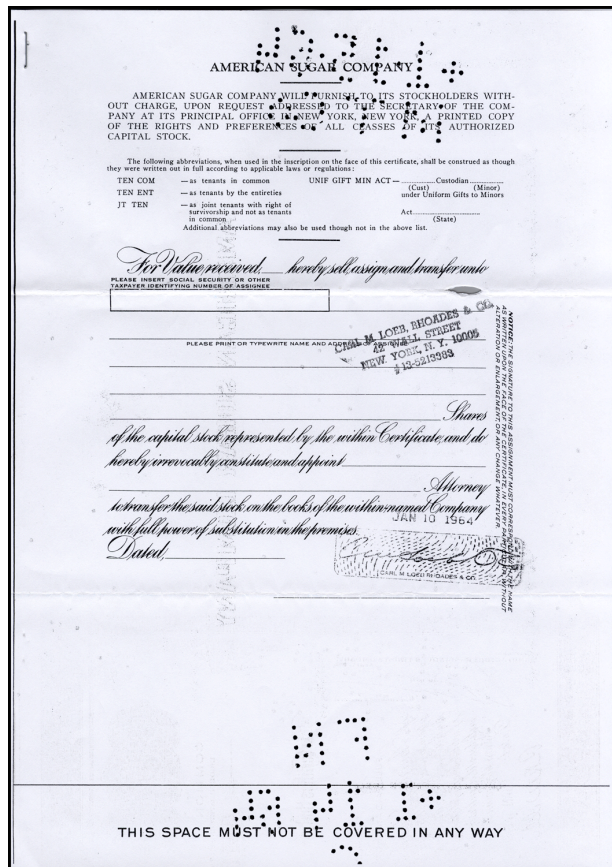 AMERICAN SUGAR COMPANY
AMERICAN SUGAR COMPANY WILL FURNISH TO ITS STOCKHOLDERS WITH-
OUT CHARGE, UPON REQUEST ADDRESSED TO THE SECRETARY OF THE COM-
PANY AT ITS PRINCIPAL OFFICE IN NEW YORK, NEW YORK, A PRINTED COPY
OF THE RIGHTS AND PREFERENCES OF ALL CLASSES OF ITS AUTHORIZED
CAPITAL STOCK.
The following abbreviations, when used in the inscription on the face of this certificate, shall be construed as though
they were written out in full according to applicable laws or regulations:
TEN COM — as tenants in common
TEN ENT — as tenants by the entireties
JT TEN — as joint tenants with right of
survivorship and not as tenants
in common
UNIF GIFT MIN ACT — Custodian
(Cust) (Minor)
under Uniform Gifts to Minors
Act
(State)
Additional abbreviations may also be used though not in the above list.
For Value received, hereby sell, assign and transfer unto
PLEASE INSERT SOCIAL SECURITY OR OTHER
TAXPAYER IDENTIFYING NUMBER OF ASSIGNEE
CARL M. LOEB, RHOADES & CO.
42 WALL STREET
NEW YORK, N. Y. 10005
# 13-5213983
PLEASE PRINT OR TYPEWRITE NAME AND ADDRESS OF ASSIGNEE
Shares
of the capital stock represented by the within Certificate, and do
hereby irrevocably constitute and appoint
Attorney
to transfer the said stock on the books of the within-named Company
with full power of substitution in the premises.
JAN 10 1964
Dated,
CARL M LOEB RHOADES & CO.
NOTICE: THE SIGNATURE TO THIS ASSIGNMENT MUST CORRESPOND WITH THE NAME
AS WRITTEN UPON THE FACE OF THE CERTIFICATE, IN EVERY PARTICULAR, WITHOUT
ALTERATION OR ENLARGEMENT, OR ANY CHANGE WHATEVER.
THIS SPACE MUST NOT BE COVERED IN ANY WAY